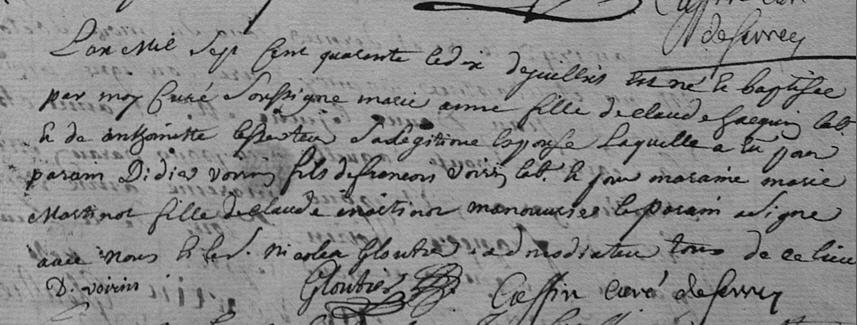 Caffin curé
de Serrey
L'an Mil Sept Cent quarente le dix de juillet est né et baptisée
par moy Curé Soussigné marie anne fille de claude Jacquin lab.
et de anthoinette sa légitime Epouse Laquelle a eu pour
parain Didier voirin fils de francois Voirin lab. et pour maraine marie
Martinot fille de Claude martinot manouvrier le parain a Signé
avec nous et le S. Nicolas Gloutier admodiateur tous de ce lieu
D. voirin Gloutier Caffin curé de Serrey